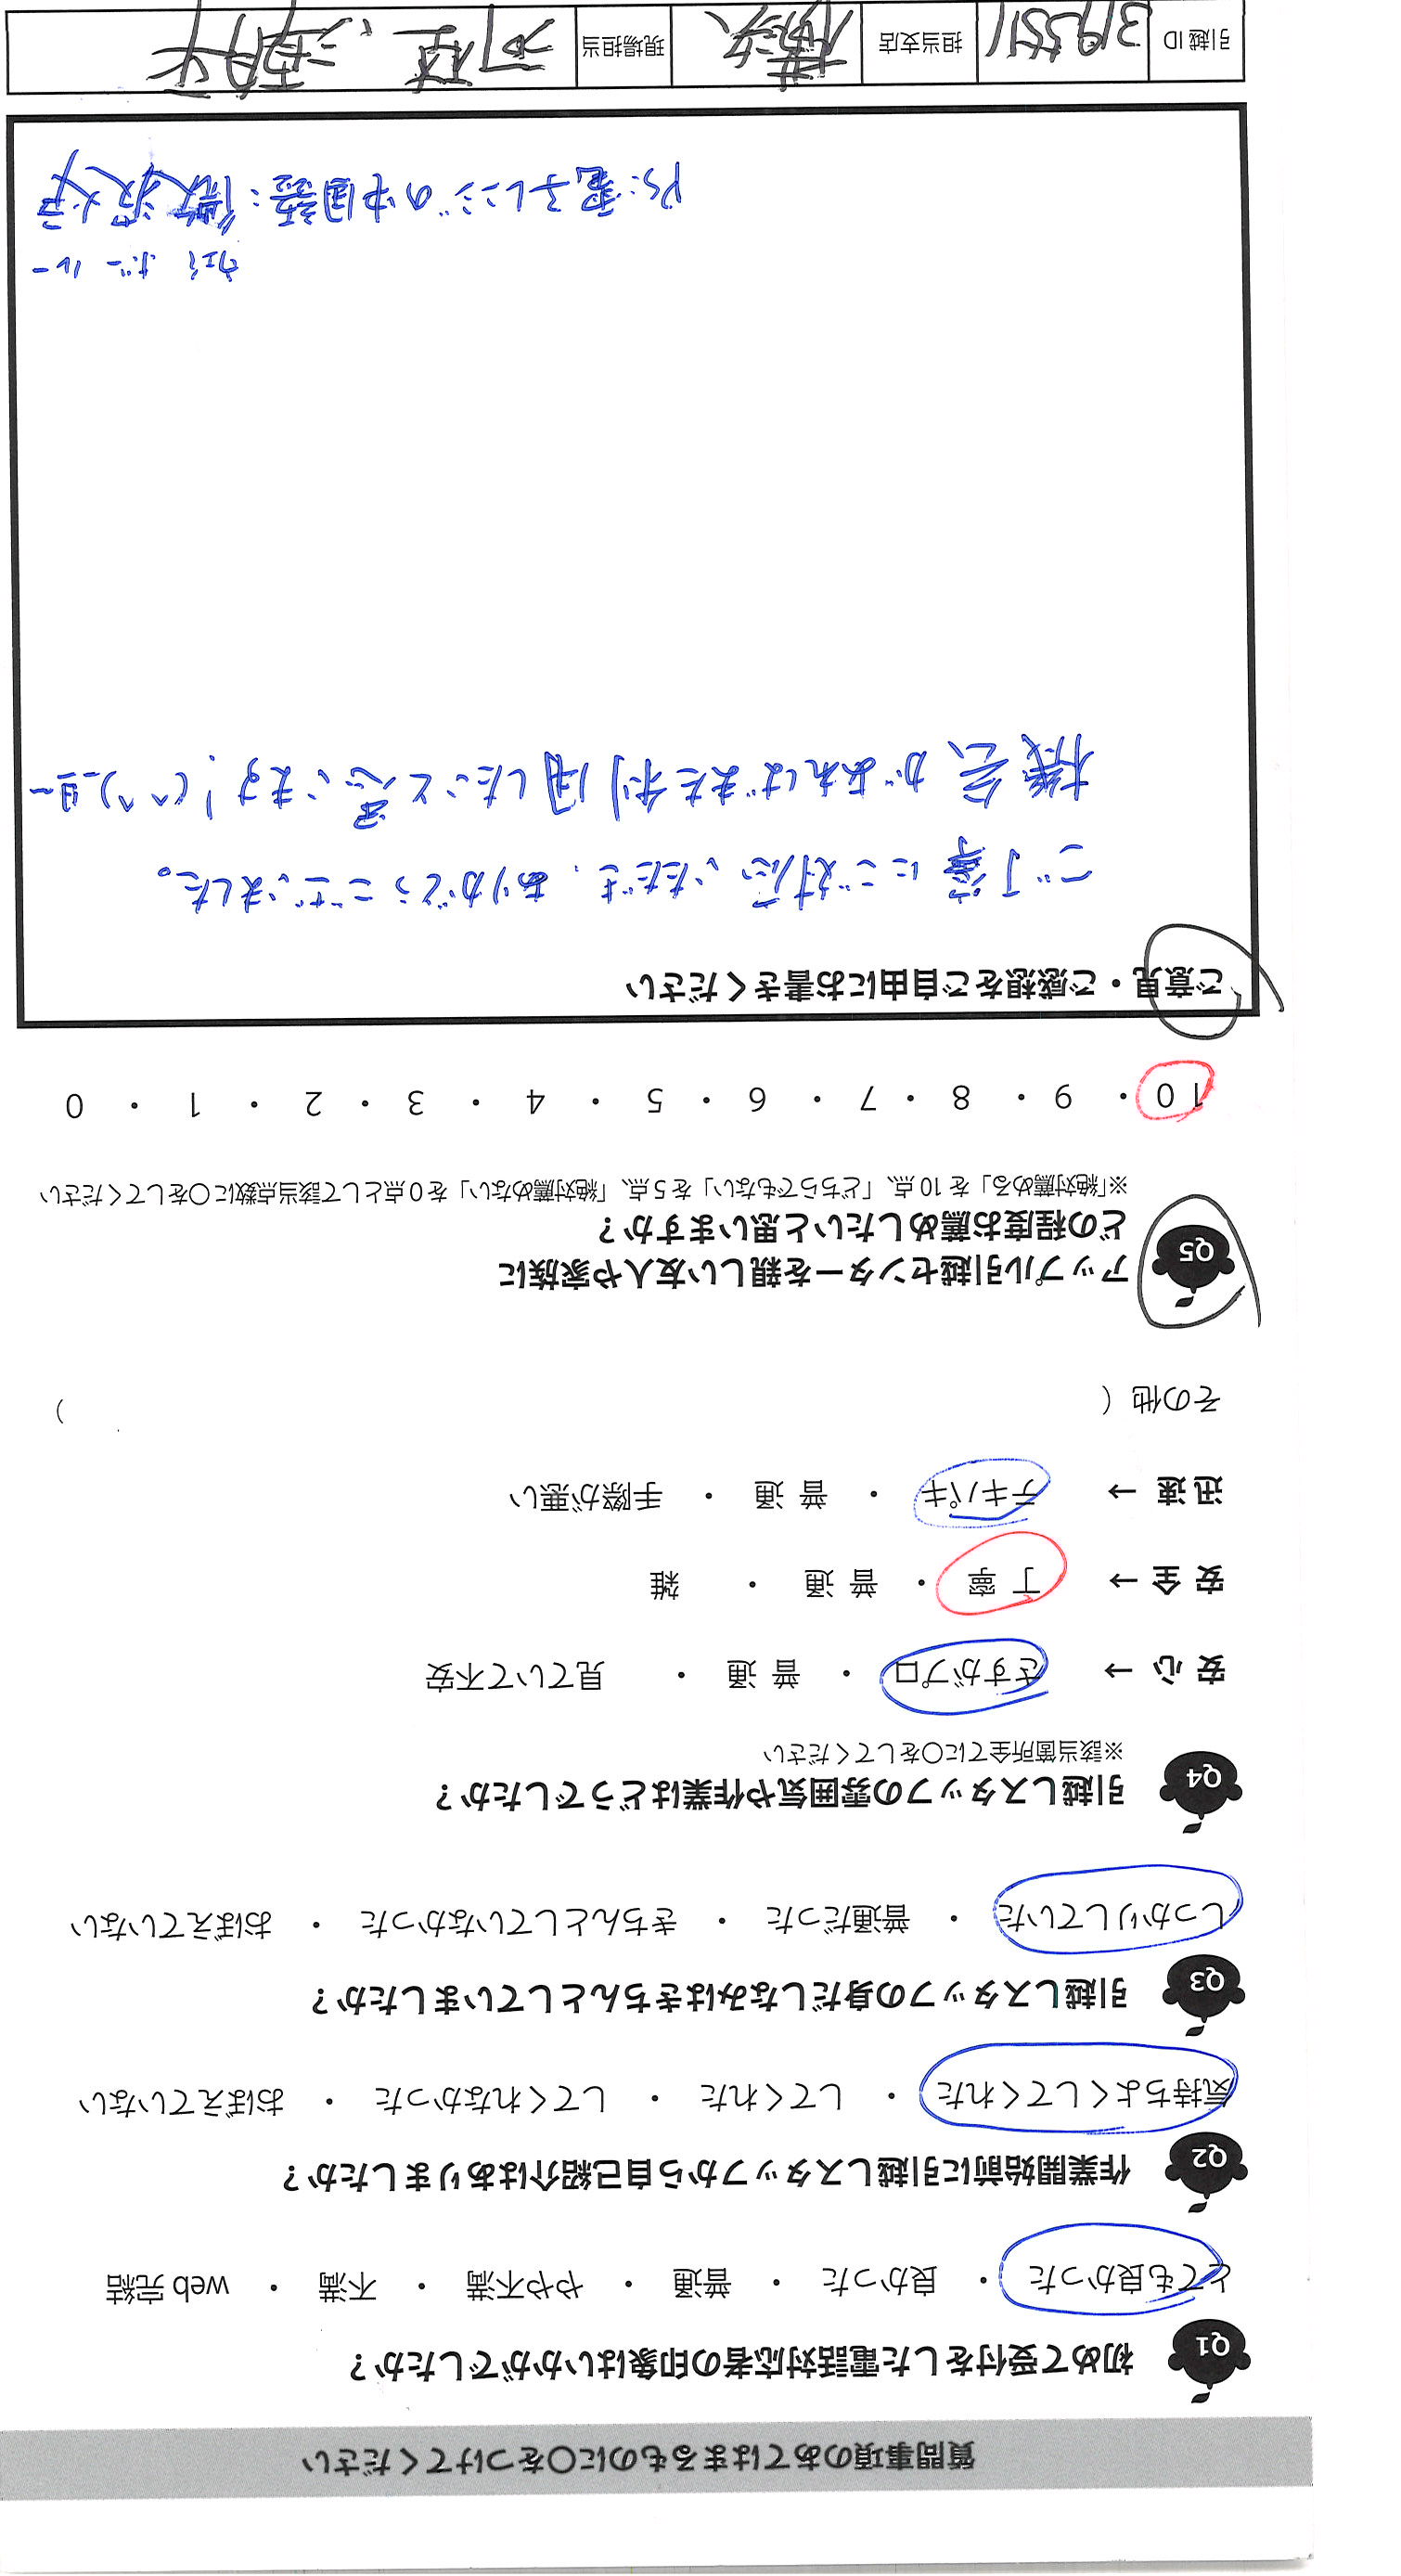 質問事項のあてはまるものに〇をつけてください
Q1 初めて受付をした電話対応者の印象はいかがでしたか？
とても良かった ・ 良かった ・ 普通 ・ やや不満 ・ 不満 ・ web 完結
Q2 作業開始前に引越しスタッフから自己紹介はありましたか？
気持ちよくしてくれた ・ してくれた ・ してくれなかった ・ おぼえていない
Q3 引越しスタッフの身だしなみはきちんとしていましたか？
しっかりしていた ・ 普通だった ・ きちんとしていなかった ・ おぼえていない
Q4 引越しスタッフの雰囲気や作業はどうでしたか？
※該当箇所全てに〇をしてください
安 心 → さすがプロ ・ 普 通 ・ 見ていて不安
安 全 → 丁 寧 ・ 普 通 ・ 雑
迅 速 → テキパキ ・ 普 通 ・ 手際が悪い
その他（ ）
Q5 アップル引越センターを親しい友人や家族に
どの程度お薦めしたいと思いますか？
※「絶対薦める」を 10 点、「どちらでもない」を 5 点、「絶対薦めない」を 0 点として該当点数に〇をしてください
10 ・ 9 ・ 8 ・ 7 ・ 6 ・ 5 ・ 4 ・ 3 ・ 2 ・ 1 ・ 0
ご意見・ご感想をご自由にお書きください
ご丁寧にご対応いただき、ありがとうございました。
機会があればまた利用したいと思います！
ウェイ ボー ルー
PS:電子レンジの中国語：微波炉
引越 ID 担当支店 横浜 現場担当